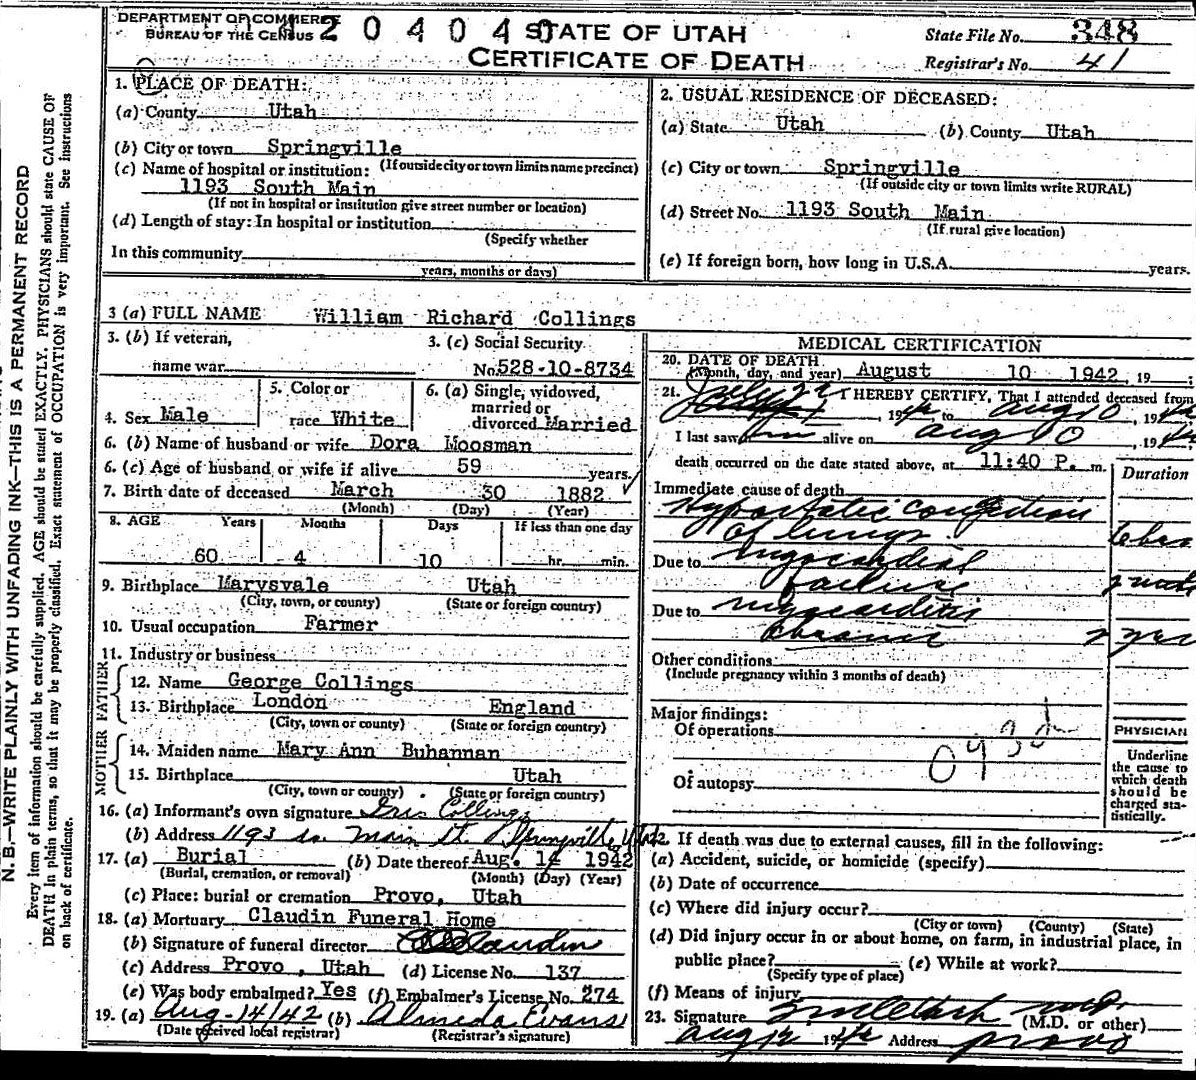 DEPARTMENT OF COMMERCE
BUREAU OF THE CENSUS
2 0 4 0 4 0
STATE OF UTAH
CERTIFICATE OF DEATH
State File No. 348
Registrar's No. 41
N. B.—WRITE PLAINLY WITH UNFADING INK—THIS IS A PERMANENT RECORD
Every item of information should be carefully supplied. AGE should be stated EXACTLY. PHYSICIANS should state CAUSE OF
DEATH in plain terms, so that it may be properly classified. Exact statement of OCCUPATION is very important. See instructions
on back of certificate.
1. PLACE OF DEATH:
(a) County Utah
(b) City or town Springville
(If outside city or town limits name precinct)
(c) Name of hospital or institution:
1193 South Main
(If not in hospital or institution give street number or location)
(d) Length of stay: In hospital or institution
(Specify whether
In this community
years, months or days)
2. USUAL RESIDENCE OF DECEASED:
(a) State Utah (b) County Utah
(c) City or town Springville
(If outside city or town limits write RURAL)
(d) Street No. 1193 South Main
(If rural give location)
(e) If foreign born, how long in U.S.A. years.
3 (a) FULL NAME William Richard Collings
3. (b) If veteran,
name war
3. (c) Social Security
No. 528-10-8734
4. Sex Male
5. Color or
race White
6. (a) Single, widowed,
married or
divorced Married
6. (b) Name of husband or wife Dora Moosman
6. (c) Age of husband or wife if alive 59 years.
7. Birth date of deceased March 30 1882
(Month) (Day) (Year)
8. AGE Years Months Days If less than one day
60 4 10 hr. min.
9. Birthplace Marysvale Utah
(City, town, or county) (State or foreign country)
10. Usual occupation Farmer
11. Industry or business
FATHER
12. Name George Collings
13. Birthplace London England
(City, town or county) (State or foreign country)
MOTHER
14. Maiden name Mary Ann Buhannan
15. Birthplace Utah
(City, town or county) (State or foreign country)
16. (a) Informant's own signature Iris Collings
(b) Address 1193 So. Main St. Springville, Utah
17. (a) Burial (b) Date thereof Aug. 14 1942
(Burial, cremation, or removal) (Month) (Day) (Year)
(c) Place: burial or cremation Provo, Utah
18. (a) Mortuary Claudin Funeral Home
(b) Signature of funeral director Claudin
(c) Address Provo, Utah (d) License No. 137
(e) Was body embalmed? Yes (f) Embalmer's License No. 274
19. (a) Aug-14/42 (b) Almeda Evans
(Date received local registrar) (Registrar's signature)
MEDICAL CERTIFICATION
20. DATE OF DEATH
(Month, day, and year) August 10 1942, 19
21. I HEREBY CERTIFY, That I attended deceased from
July 22 1942 to Aug 10, 1942
I last saw him alive on Aug 10, 1942
death occurred on the date stated above, at 11:40 P. m.
Duration
Immediate cause of death
Hypostatic congestion
of lungs
Due to myocardial
failure
Due to myocarditis
chronic 2 yrs
Other conditions
(Include pregnancy within 3 months of death)
Major findings:
Of operations
093d
Of autopsy
PHYSICIAN
Underline
the cause to
which death
should be
charged sta-
tistically.
22. If death was due to external causes, fill in the following:
(a) Accident, suicide, or homicide (specify)
(b) Date of occurrence
(c) Where did injury occur?
(City or town) (County) (State)
(d) Did injury occur in or about home, on farm, in industrial place, in
public place? (e) While at work?
(Specify type of place)
(f) Means of injury
23. Signature M.D.
(M.D. or other)
Aug 12 1942 Address Provo